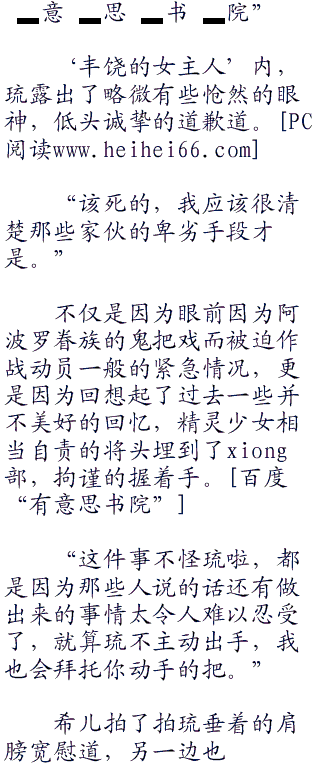 ▂意 ▂思 ▂书 ▂院”
‘丰饶的女主人’内，
琉露出了略微有些怆然的眼
神，低头诚挚的道歉道。[PC
阅读www.heihei66.com]
“该死的，我应该很清
楚那些家伙的卑劣手段才
是。”
不仅是因为眼前因为阿
波罗眷族的鬼把戏而被迫作
战动员一般的紧急情况，更
是因为回想起了过去一些并
不美好的回忆，精灵少女相
当自责的将头埋到了xiong
部，拘谨的握着手。[百度
“有意思书院”]
“这件事不怪琉啦，都
是因为那些人说的话还有做
出来的事情太令人难以忍受
了，就算琉不主动出手，我
也会拜托你动手的把。”
希儿拍了拍琉垂着的肩
膀宽慰道，另一边也